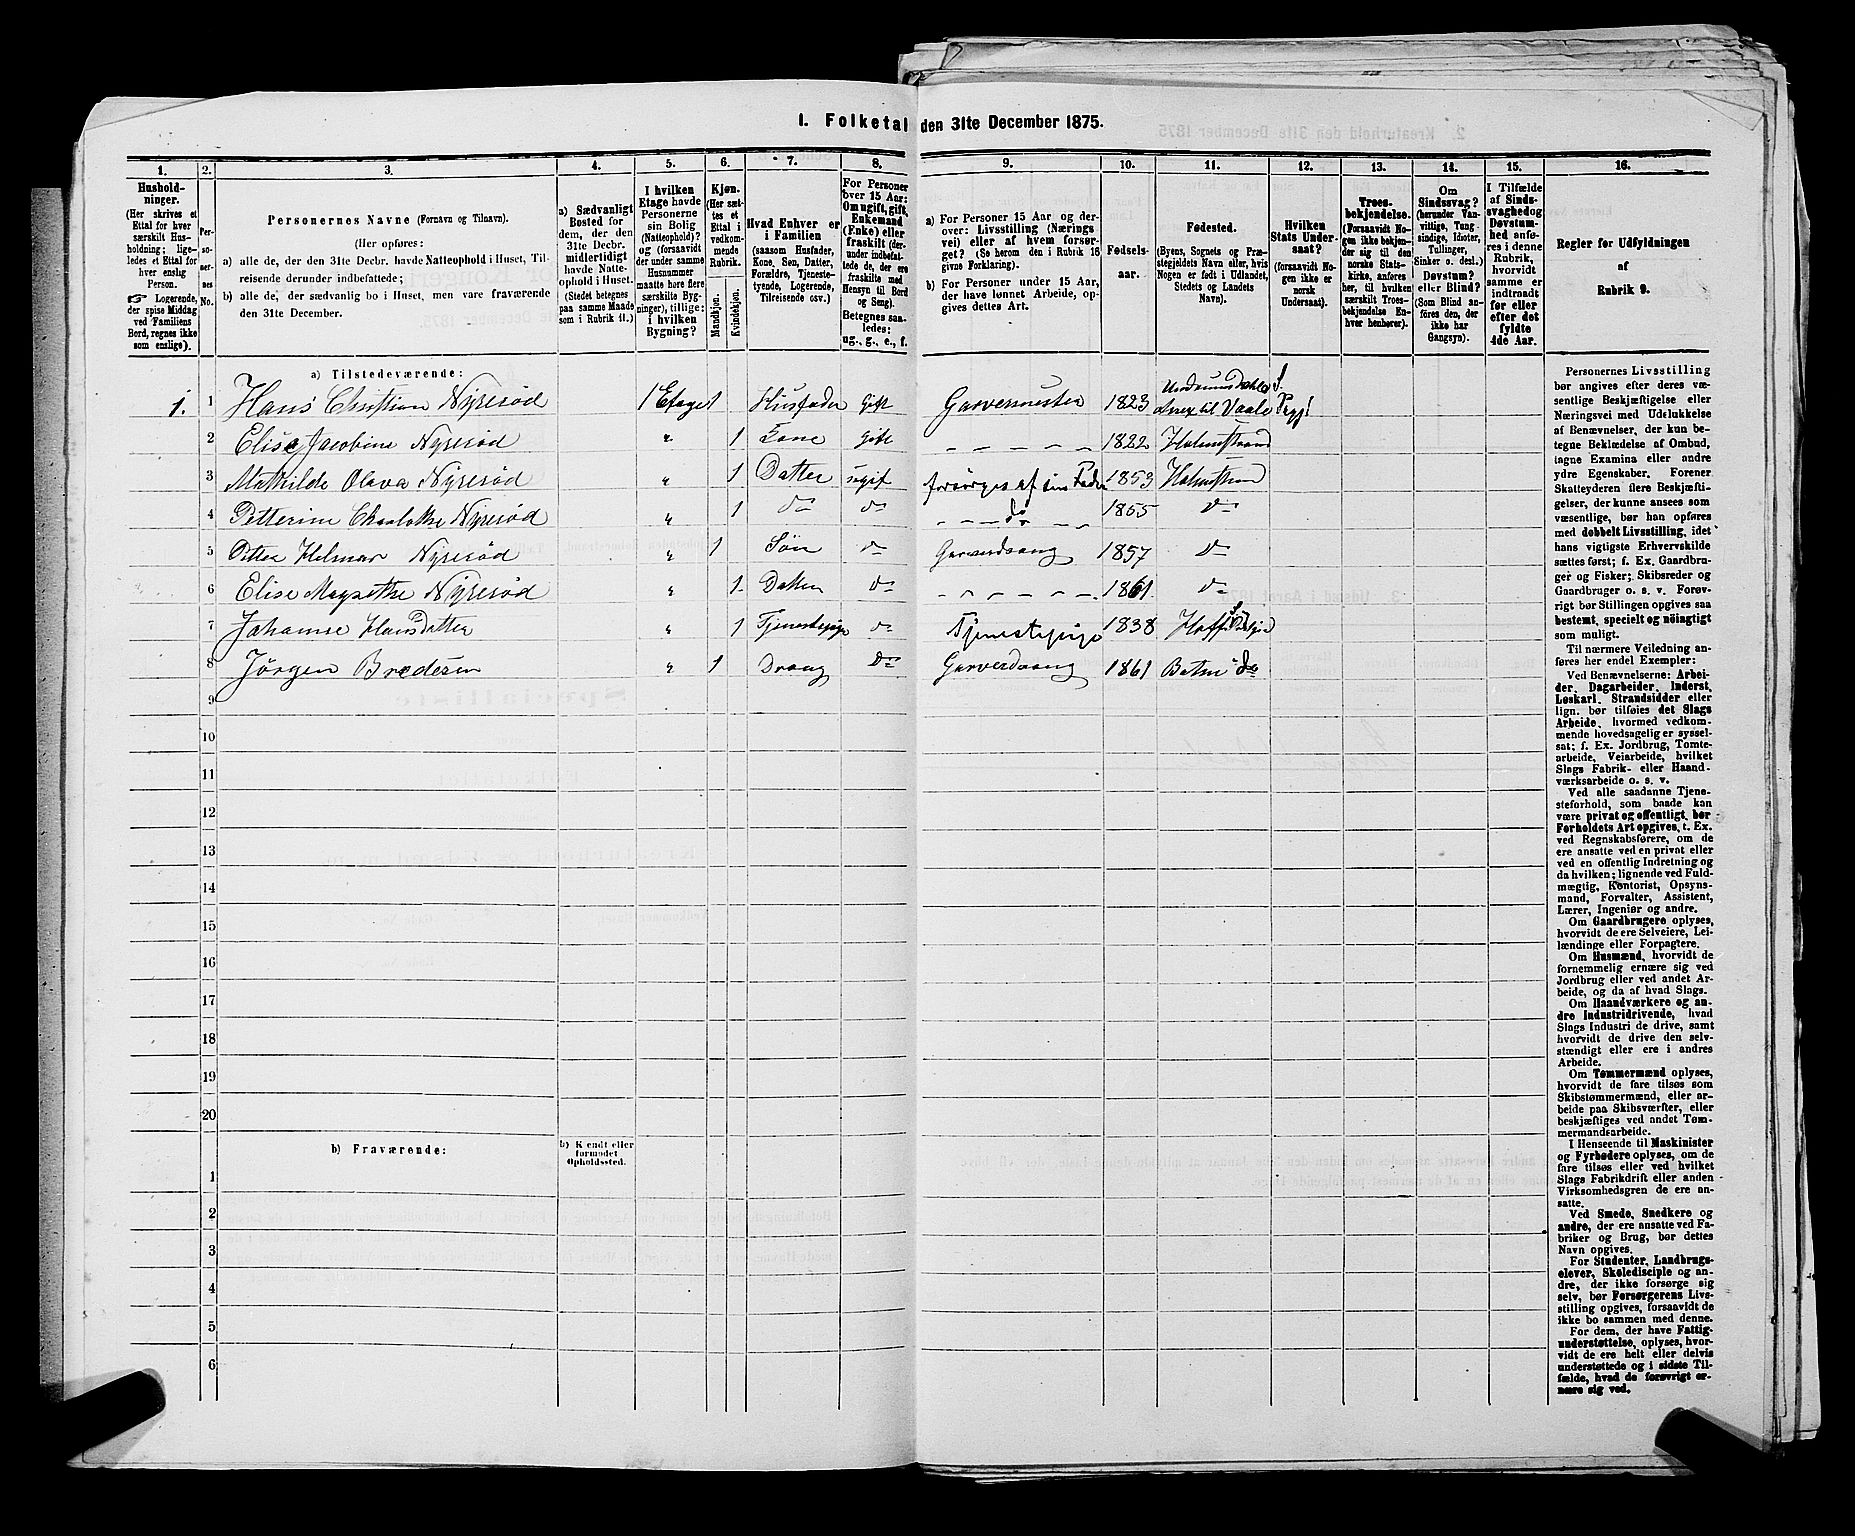 1. Folketal den 31te December 1875.
1.
Hushold-
ninger.
(Her skrives et
Ettal for hver
særskilt Hus-
holdning; lige-
ledes et Ettal for
hver enslig
Person.
☞ Logerende,
der spise Middag
ved Familiens
Bord, regnes ikke
som enslige).
2.
Per-
so-
ner-
nes
No.
3.
Personernes Navne (Fornavn og Tilnavn).
(Her opføres:
a) alle de, der den 31te Decbr. havde Natteophold i Huset, Til-
reisende derunder indbefattede;
b) alle de, der sædvanlig bo i Huset, men vare fraværende
den 31te December.
4.
a) Sædvanligt
Bosted for
dem, der den
31te Decbr.
midlertidigt
havde Natte-
ophold i Huset.
(Stedet betegnes
paa samme Maade
som i Rubrik 11.)
5.
I hvilken
Etage havde
Personerne
sin Bolig
(Natteophold)?
og (forsaavidt
der under samme
Husnummer
maatte høre flere
særskilte Byg-
ninger), tillige:
i hvilken
Bygning?
6.
Kjøn.
(Her sæt-
tes et
Ettal i
vedkom-
mende
Rubrik.
Mandkjøn.
Kvindekjøn.
7.
Hvad Enhver er
i Familien
(saasom Husfader,
Kone, Søn, Datter,
Forældre, Tjeneste-
tyende, Logerende,
Tilreisende osv.)
8.
For Personer
over 15 Aar:
Om ugift, gift,
Enkemand
(Enke) eller
fraskilt (der-
under indbefat-
tede de, der ere
fraskilte med
Hensyn til Bord
og Seng).
Betegnes saa-
ledes:
ug., g., e., f.
9.
a) For Personer 15 Aar og der-
over: Livsstilling (Nærings
vei) eller af hvem forsør-
get? (Se herom den i Rubrik 16
givne Forklaring).
b) For Personer under 15 Aar,
der have lønnet Arbeide, op-
gives dettes Art.
10.
Fødsels-
aar.
11.
Fødested.
(Byens, Sognets og Præ-
stegjeldets Navn eller, hvis
Nogen er født i Udlandet,
Stedets og Landets
Navn).
12.
Hvilken
Stats Under-
saat?
(forsaavidt No-
gen ikke er
norsk
Undersaat).
13.
Troes-
bekjendelse.
(Forsaavidt No-
gen ikke bekjen-
der sig til den
norske Stats-
kirke, anføres
her, til hvilken
særskilt Troes-
bekjendelse En-
hver henhører).
14.
Om
Sindssvag?
(herunder Van-
vittige, Tung-
sindige, Idioter,
Tullinger,
Sinker o. desl.)
Døvstum?
eller Blind?
(Som Blind an-
føres den, der
ikke har
Gangsyn).
15.
I Tilfælde
af Sinds-
svaghed og
Døvstum-
hed anfø-
res i denne
Rubrik,
hvorvidt
samme er
indtraadt
før eller
efter det
fyldte
4de Aar.
16.
Regler for Udfyldningen
af
Rubrik 9.
a) Tilstedeværende:
1. 1 Hans Christian Nyresød 1 Etage 1 Husfader Gift Garvermester 1823 Annex til Vaale
2 Elise Jacobine Nyresød " 1 Kone Gift - - - - 1822 Holmestrand
3 Mathilde Olava Nyresød " 1 Datter ugift forsørges af sin Fader 1853 Holmestrand
4 Petterine Charlotte Nyresød " 1 do do - - do - - 1855 do
5 Otto Helmar Nyresød " 1 Søn do Garverdreng 1857 do
6 Elise Magrethe Nyresød " 1 Datter do - - - - - 1861 do
7 Johanne Hansdatter " 1 Tjenestepige do Tjenestepige 1838 Hoff
8 Jørgen Bredesen " 1 Dreng do Garverdreng 1861 Botne do
9
10
11
12
13
14
15
16
17
18
19
20
b) Fraværende:
b) Kjendt eller
formodet
Opholdssted.
1
2
3
4
5
6
Personernes Livsstilling
bør angives efter deres væ-
sentlige Beskjæftigelse eller
Næringsvei med Udelukkelse
af Benævnelser, der kun be-
tegne Beklædelse af Ombud,
tagne Examina eller andre
ydre Egenskaber. Forener
Skatteyderen flere Beskjæfti-
gelser, der kunne ansees som
væsentlige, bør han opføres
med dobbelt Livsstilling, idet
hans vigtigste Erhvervskilde
sættes først; f. Ex. Gaardbru-
ger og Fisker; Skibsreder og
Gaardbruger o. s. v. Forøv-
rigt bør Stillingen opgives saa
bestemt, specielt og nøiagtigt
som muligt.
Til nærmere Veiledning an-
føres her endel Exempler:
Ved Benævnelserne: Arbei-
der, Dagarbeider, Inderst,
Løskarl, Strandsidder eller
lign. bør tilføies det Slags
Arbeide, hvormed vedkom-
mende hovedsagelig er syssel-
sat; f. Ex. Jordbrug, Tomte-
arbeide, Veiarbeide, hvilket
Slags Fabrik- eller Haand-
værksarbeide o. s. v.
Ved alle saadanne Tjene-
steforhold, som baade kan
være privat og offentligt, bør
Forholdets Art opgives, t. Ex.
ved Regnskabsførere, om de
ere ansatte ved en privat eller
ved en offentlig Indretning og
da hvilken; lignende ved Fuld-
mægtig, Kontorist, Opsyns-
mand, Forvalter, Assistent,
Lærer, Ingeniør og andre.
Om Gaardbrugere oplyses,
hvorvidt de ere Selveiere, Lei-
lændinge eller Forpagtere.
Om Husmænd, hvorvidt de
fornemmelig ernære sig ved
Jordbrug eller ved andet Ar-
beide, og da af hvad Slags.
Om Haandværkere og an-
dre Industridrivende, hvad
Slags Industri de drive, samt
hvorvidt de drive den selv-
stændigt eller ere i andres
Arbeide.
Om Tømmermænd oplyses,
hvorvidt de fare tilsøs som
Skibstømmermænd, eller ar-
beide paa Skibsværfter, eller
beskjæftiges ved andet Tøm-
mermandsarbeide.
I Henseende til Maskinister
og Fyrbødere oplyses, om de
fare tilsøs eller ved hvilket
Slags Fabrikdrift eller anden
Virksomhedsgren de ere an-
satte.
Ved Smede, Snedkere og
andre, der ere ansatte ved Fa-
briker og Brug, bør dettes
Navn opgives.
For Studenter, Landbrugs-
elever, Skoledisciple og an-
dre, der ikke forsørge sig
selv, bør Forsørgerens Livs-
stilling opgives, forsaavidt de
ikke bo sammen med denne.
For dem, der have Fattig-
understøttelse, oplyses, hvor-
vidt de ere helt eller delvis
understøttede og i sidste Til-
fælde, hvad de forøvrigt er-
nære sig ved.